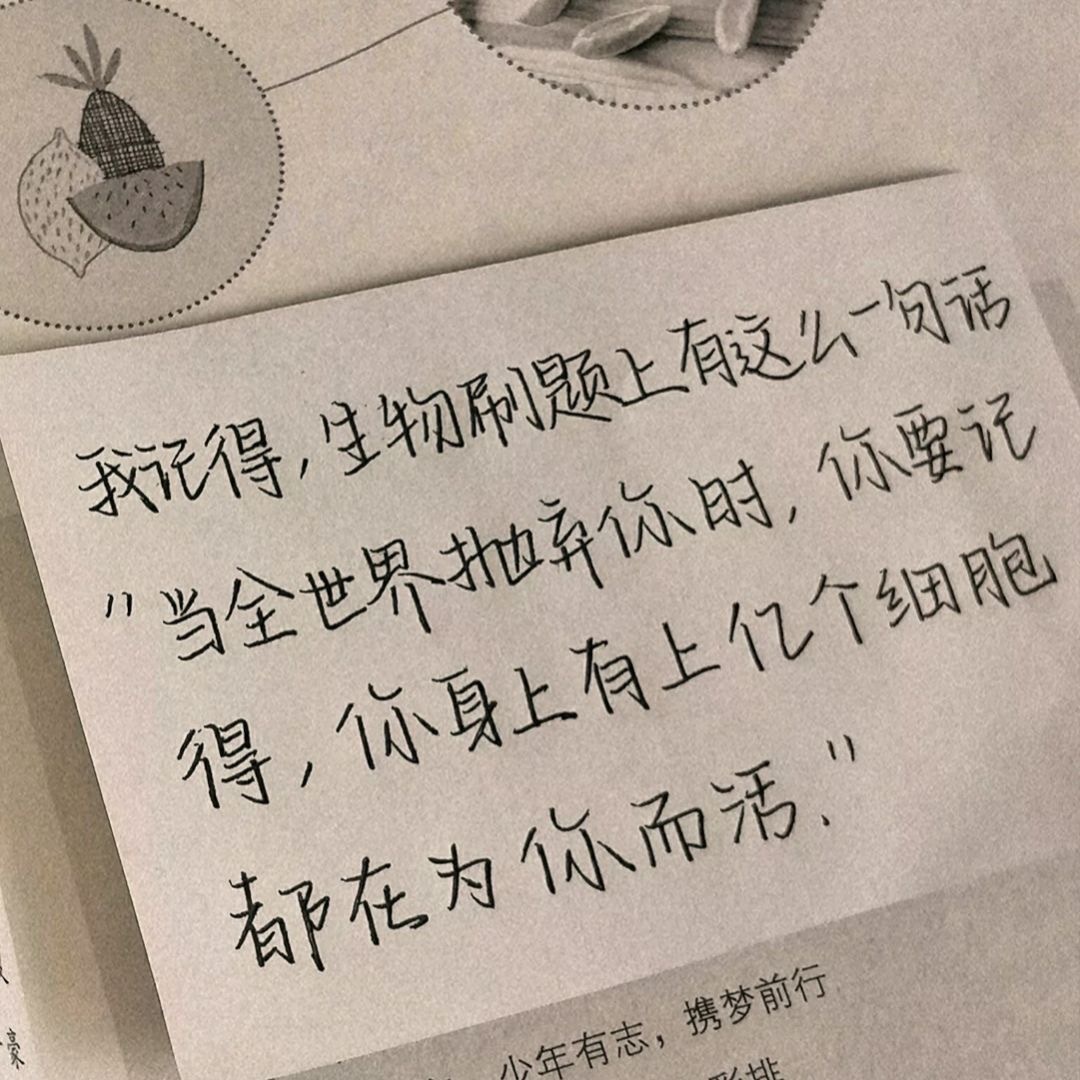 我记得,生物刷题上有这么一句话
"当全世界抛弃你时,你要记
得,你身上有上亿个细胞
都在为你而活."
少年有志，携梦前行
豪